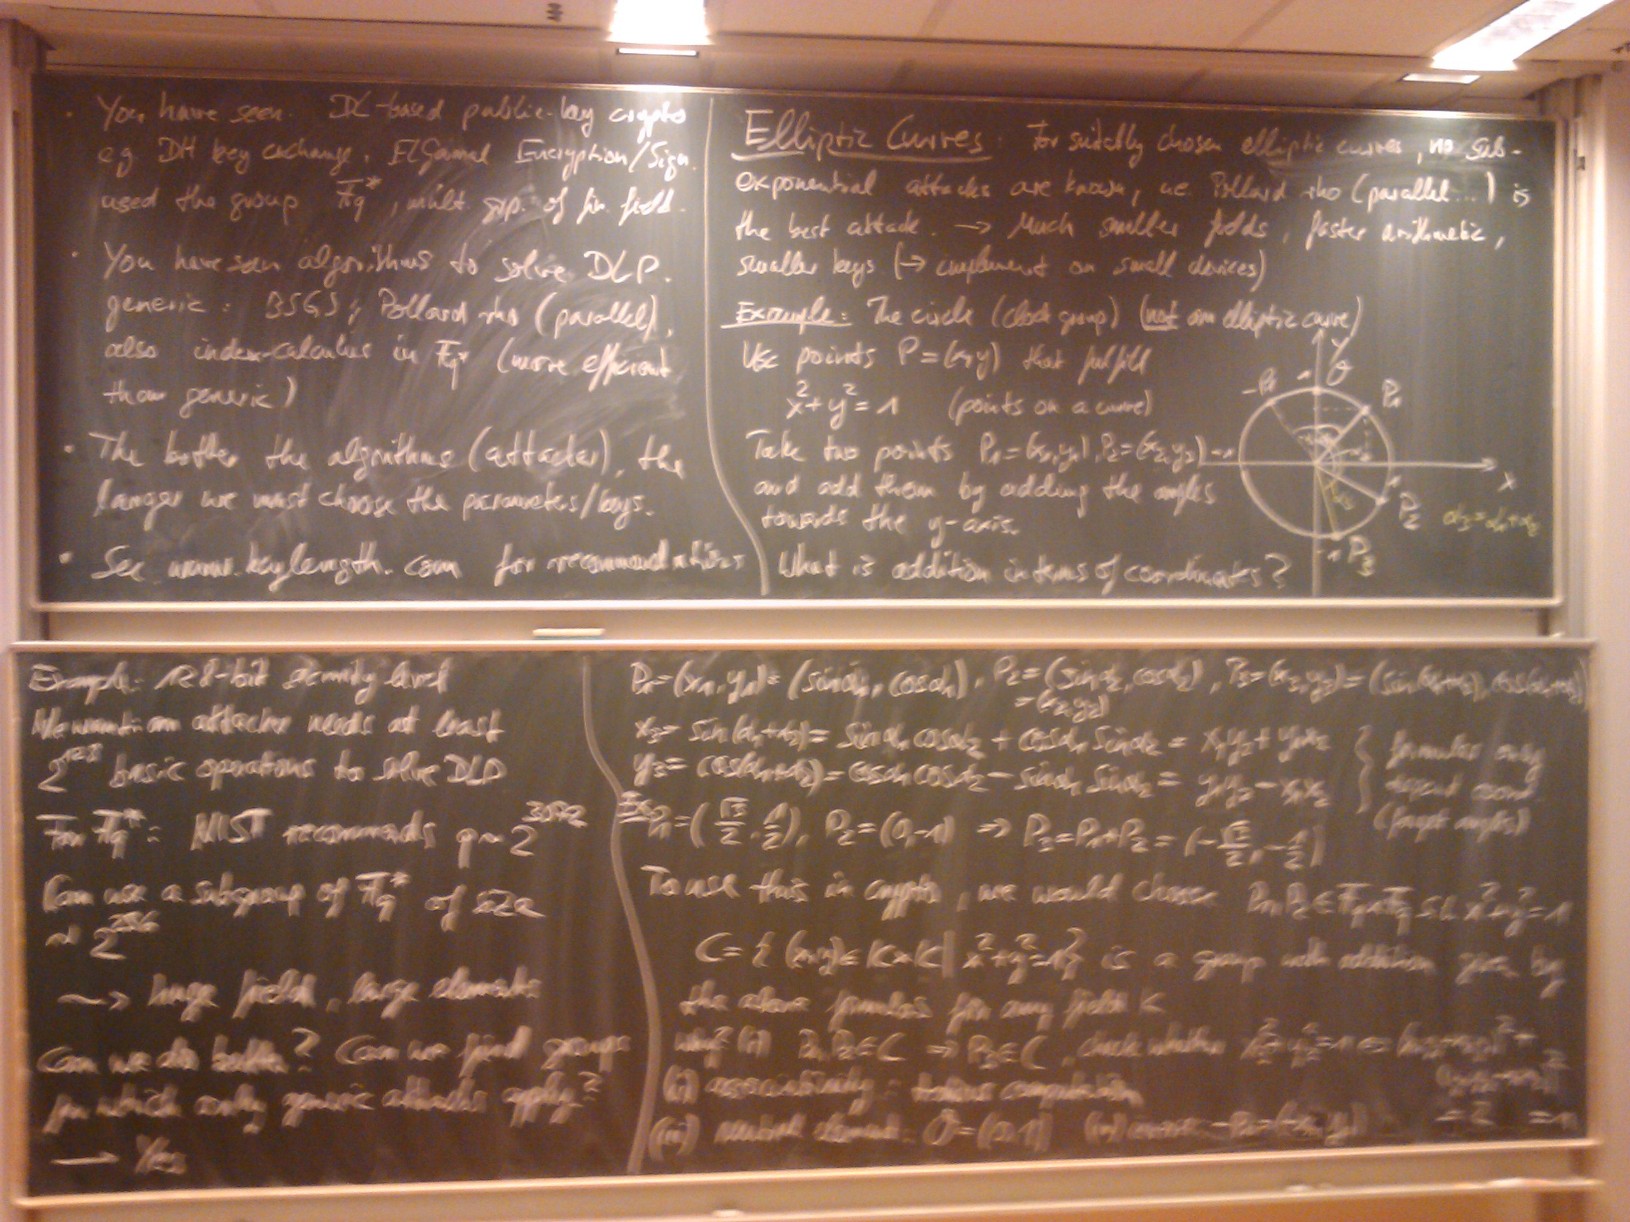 • You have seen DL-based public-key crypto
e.g. DH key exchange, ElGamal Encryption/Sign.
used the group F_q^*, mult. grp. of fin. field.
• You have seen algorithms to solve DLP.
generic: BSGS; Pollard rho (parallel),
also index-calculus in F_q^* (more efficient
than generic)
• The better the algorithms (attacks), the
larger we must choose the parameters/keys.
• See www.keylength.com for recommendations
Elliptic Curves: For suitably chosen elliptic curves, no sub-
exponential attacks are known, i.e. Pollard rho (parallel...) is
the best attack. → Much smaller fields, faster arithmetic,
smaller keys (→ implement on small devices)
Example: The circle (clock group) (not an elliptic curve)
Use points P=(x,y) that fulfill
x²+y²=1 (points on a curve)
Take two points P₁=(x₁,y₁), P₂=(x₂,y₂)
and add them by adding the angles
towards the y-axis.
What is addition in terms of coordinates?
y
O
1
-P₁
P₁
-1
x
P₂
α₃=α₁+α₂
-1
P₃
Example: 128-bit security level
Means: an attacker needs at least
2^128 basic operations to solve DLP
For F_q^*: NIST recommends q ~ 2^3072
Can use a subgroup of F_q^* of size
~ 2^256
⇝ huge field, large elements
Can we do better? Can we find groups
for which only generic attacks apply?
→ Yes
P₁=(x₁,y₁)=(sinα₁,cosα₁), P₂=(sinα₂,cosα₂), P₃=(x₃,y₃)=(sin(α₁+α₂),cos(α₁+α₂))
=(x₂,y₂)
x₃= sin(α₁+α₂)= sinα₁cosα₂ + cosα₁sinα₂ = x₁y₂+y₁x₂
y₃= cos(α₁+α₂)= cosα₁cosα₂ - sinα₁sinα₂ = y₁y₂-x₁x₂
formulas only
need coord.
(forget angles)
Ex: P₁=(√3/2, 1/2), P₂=(0,-1) ⇒ P₃=P₁+P₂=(-√3/2,-1/2)
To use this in crypto, we would choose P₁,P₂∈F_q×F_q s.t. x²+y²=1
C={(x,y)∈K×K | x²+y²=1} is a group with addition given by
the above formulas for any field K
why? (i) P₁,P₂∈C ⇒ P₃∈C, check whether x₃²+y₃²=1 ⇔ (x₁y₂+y₁x₂)²+
(y₁y₂-x₁x₂)²
=1
(ii) associativity: tedious computation
(iii) neutral element: O=(0,1) (iv) inverse -P₁=(-x₁,y₁)